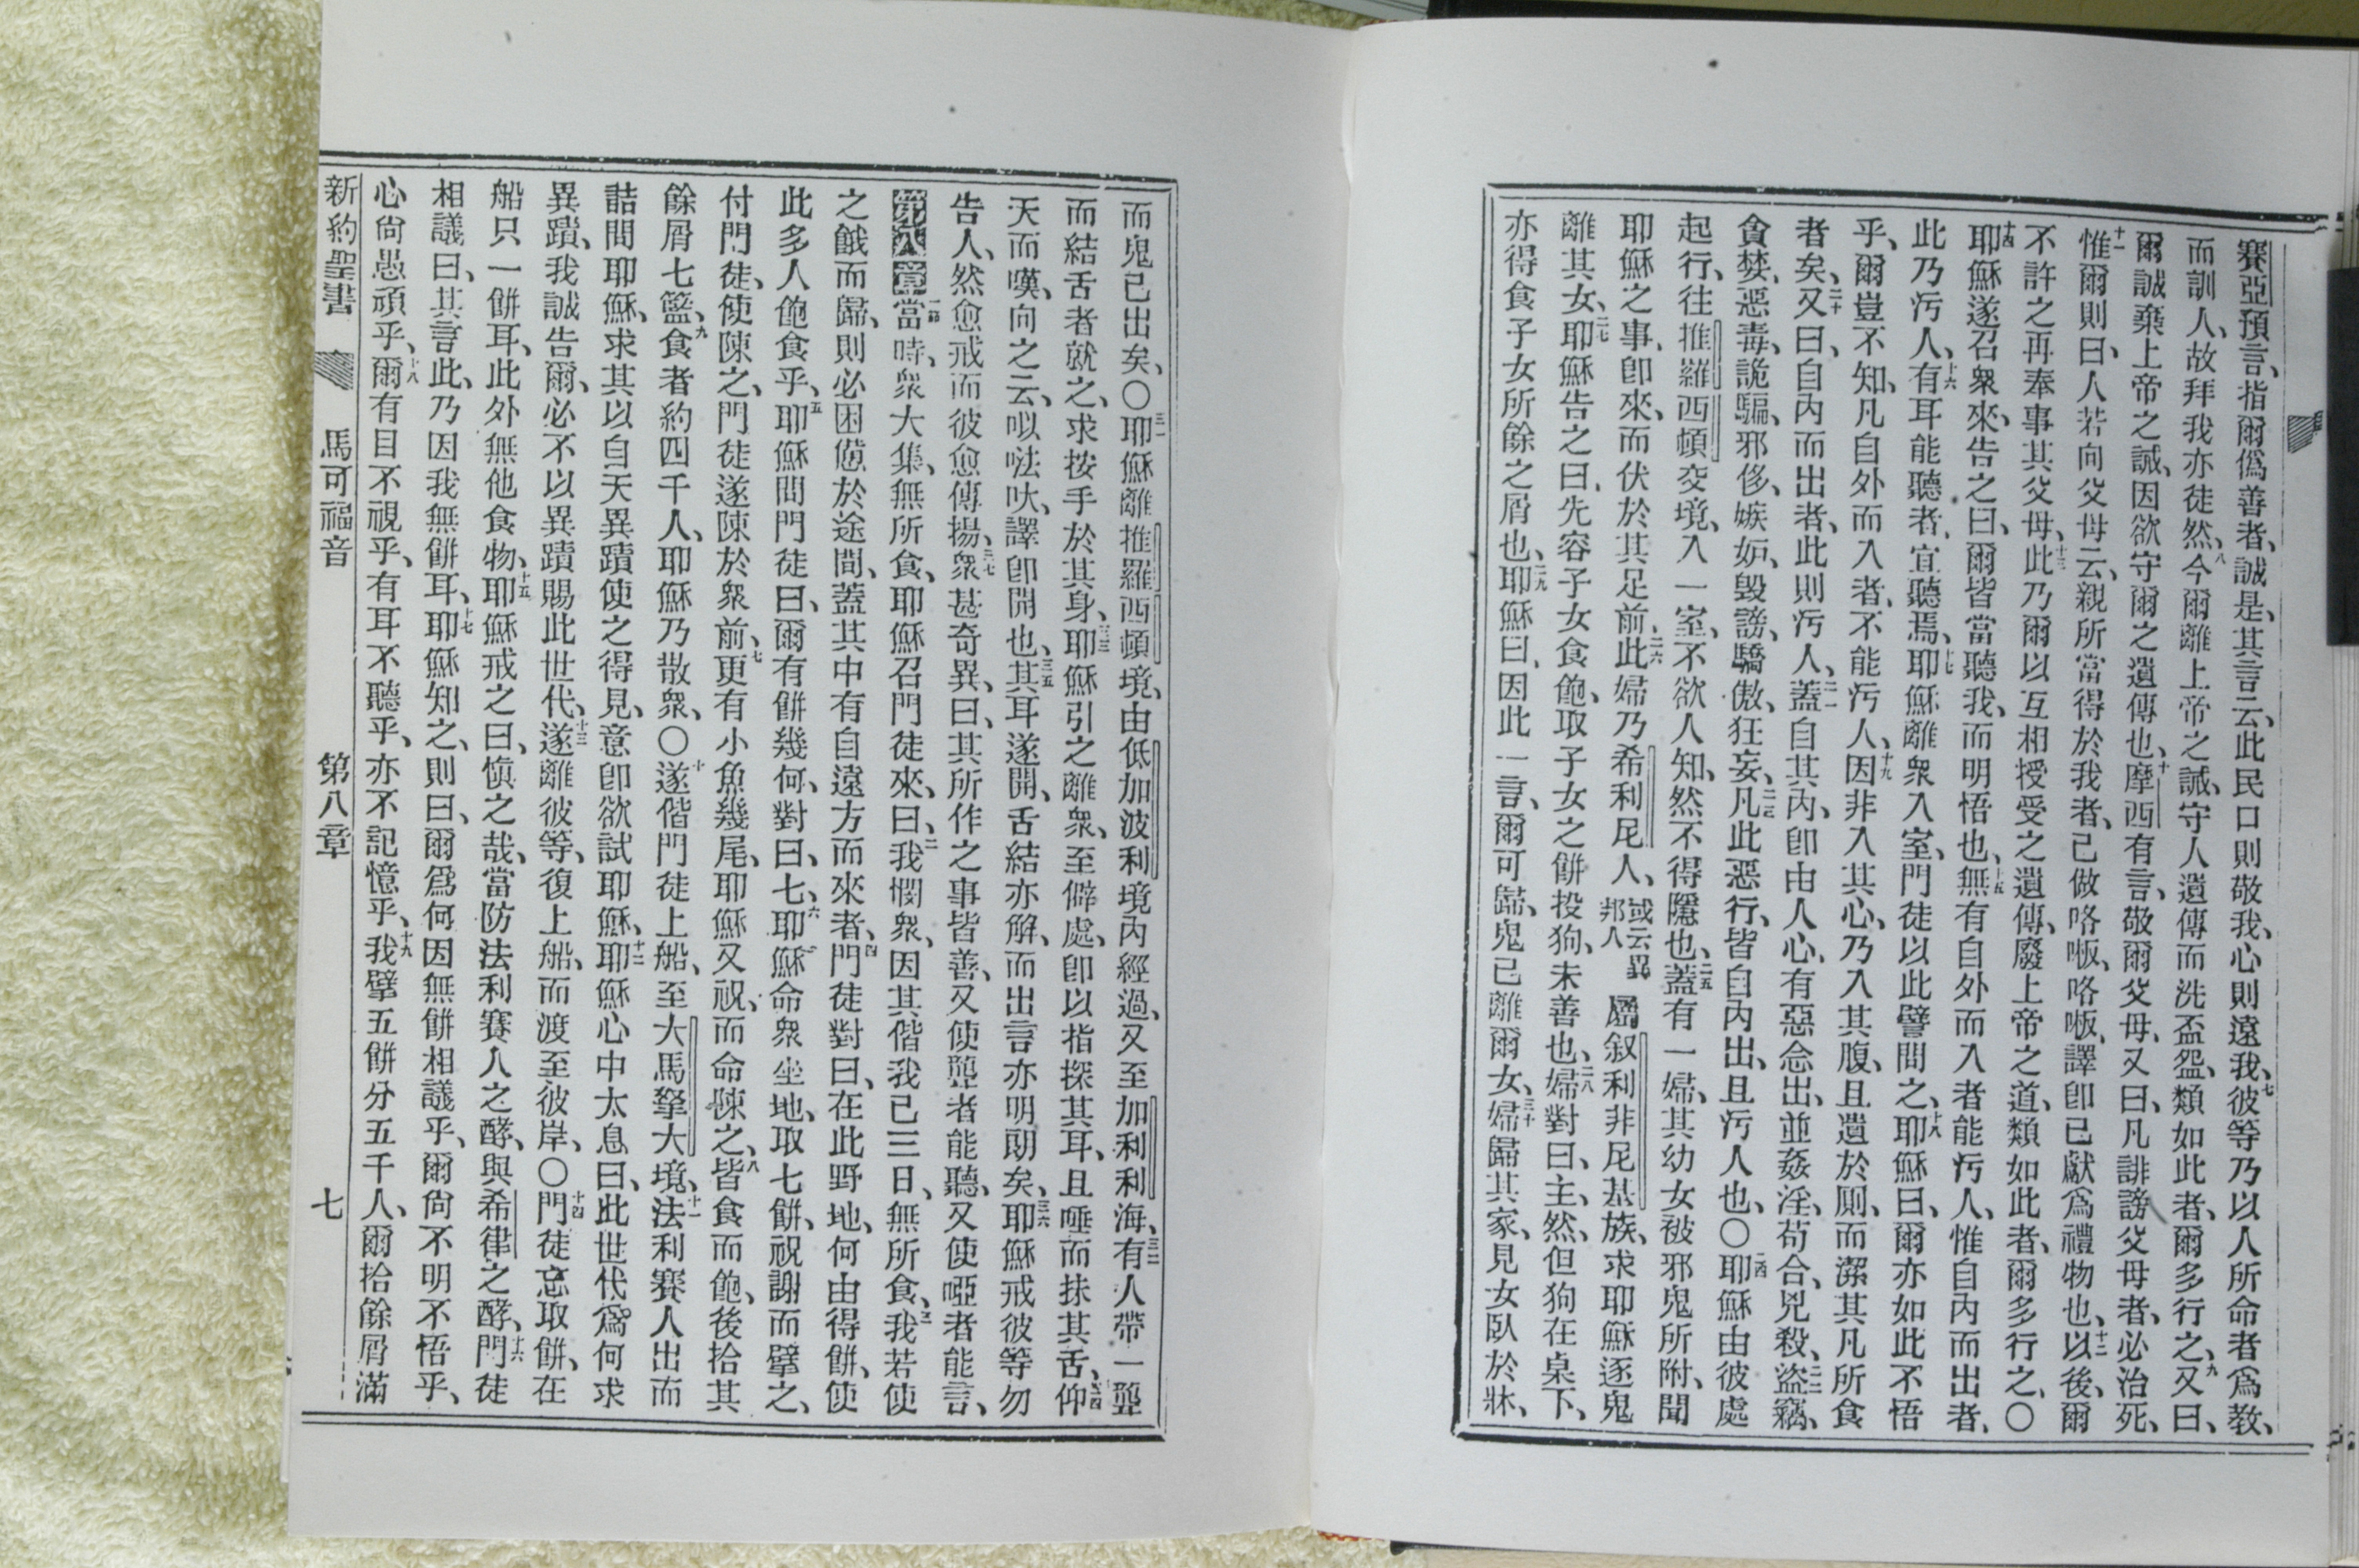 賽亞預言、指爾僞善者、誠是、其言云、此民口則敬我、心則遠我、七彼等乃以人所命者爲教、
而訓人、故拜我亦徒然、八今爾離上帝之誡、守人遺傳而洗盃盌、類如此者、爾多行之、九又曰、
爾誠棄上帝之誡、因欲守爾之遺傳也、十摩西有言、敬爾父母、又曰、凡誹謗父母者、必治死、
十一惟爾則曰、人若向父母云、親所當得於我者、已做咯㘪、咯㘪、譯卽已獻爲禮物也、十二以後、爾
不許之再奉事其父母、十三此乃爾以互相授受之遺傳、廢上帝之道、類如此者、爾多行之、〇
十四耶穌遂召衆來、告之曰、爾皆當聽我、而明悟也、十五無有自外而入者能污人、惟自內而出者、
此乃污人、十六有耳能聽者、宜聽焉、十七耶穌離衆入室、門徒以此譬問之、十八耶穌曰、爾亦如此不悟
乎、爾豈不知、凡自外而入者、不能污人、十九因非入其心、乃入其腹、且遺於厠、而潔其凡所食
者矣、二十又曰、自內而出者、此則污人、二一蓋自其內、卽由人心、有惡念出、並姦淫、苟合、兇殺、二二盜竊、
貪婪、惡毒、詭騙、邪侈、嫉妒、毀謗、驕傲、狂妄、二三凡此惡行、皆自內出、且污人也、〇二四耶穌由彼處
起行、往推羅西頓交境、入一室、不欲人知、然不得隱也、二五蓋有一婦、其幼女被邪鬼所附、聞
耶穌之事、卽來、而伏於其足前、二六此婦乃希利尼人、或云異邦人屬叙利非尼基族、求耶穌逐鬼
離其女、二七耶穌告之曰、先容子女食飽、取子女之餅投狗、未善也、二八婦對曰、主、然、但狗在桌下、
亦得食子女所餘之屑也、二九耶穌曰、因此一言、爾可歸、鬼已離爾女、三十婦歸其家、見女臥於牀、
而鬼已出矣、〇三一耶穌離推羅西頓境、由低加波利境內經過、又至加利利海、三二有人帶一聾
而結舌者就之、求按手於其身、三三耶穌引之離衆、至僻處、卽以指探其耳、且唾而抹其舌、三四仰
天而嘆、向之云、㕥㖕吠、譯卽開也、三五其耳遂開、舌結亦解、而出言亦明朗矣、三六耶穌戒彼等勿
告人、然愈戒而彼愈傳揚、三七衆甚奇異、曰、其所作之事皆善、又使聾者能聽、又使啞者能言、
第八章一當時、衆大集、無所食、耶穌召門徒來、曰、二我憫衆、因其偕我已三日、無所食、三我若使
之餓而歸、則必困憊於途間、蓋其中有自遠方而來者、四門徒對曰、在此野地、何由得餅、使
此多人飽食乎、五耶穌問門徒曰、爾有餅幾何、對曰、七、六耶穌命衆坐地、取七餅、祝謝而擘之、
付門徒、使陳之、門徒遂陳於衆前、七更有小魚幾尾、耶穌又祝、而命陳之、八皆食而飽、後拾其
餘屑七籃、九食者約四千人、耶穌乃散衆、〇十遂偕門徒上船、至大馬拏大境、十一法利賽人出而
詰問耶穌、求其以自天異蹟使之得見、意卽欲試耶穌、十二耶穌心中太息曰、此世代爲何求
異蹟、我誠告爾、必不以異蹟賜此世代、十三遂離彼等、復上船、而渡至彼岸、〇十四門徒忘取餅、在
船只一餅耳、此外無他食物、十五耶穌戒之曰、愼之哉、當防法利賽人之酵、與希律之酵、十六門徒
相議曰、其言此、乃因我無餅耳、十七耶穌知之、則曰、爾爲何因無餅相議乎、爾尙不明不悟乎、
心尙愚頑乎、十八爾有目不視乎、有耳不聽乎、亦不記憶乎、十九我擘五餅分五千人、爾拾餘屑滿
新約聖書 馬可福音 第八章 七